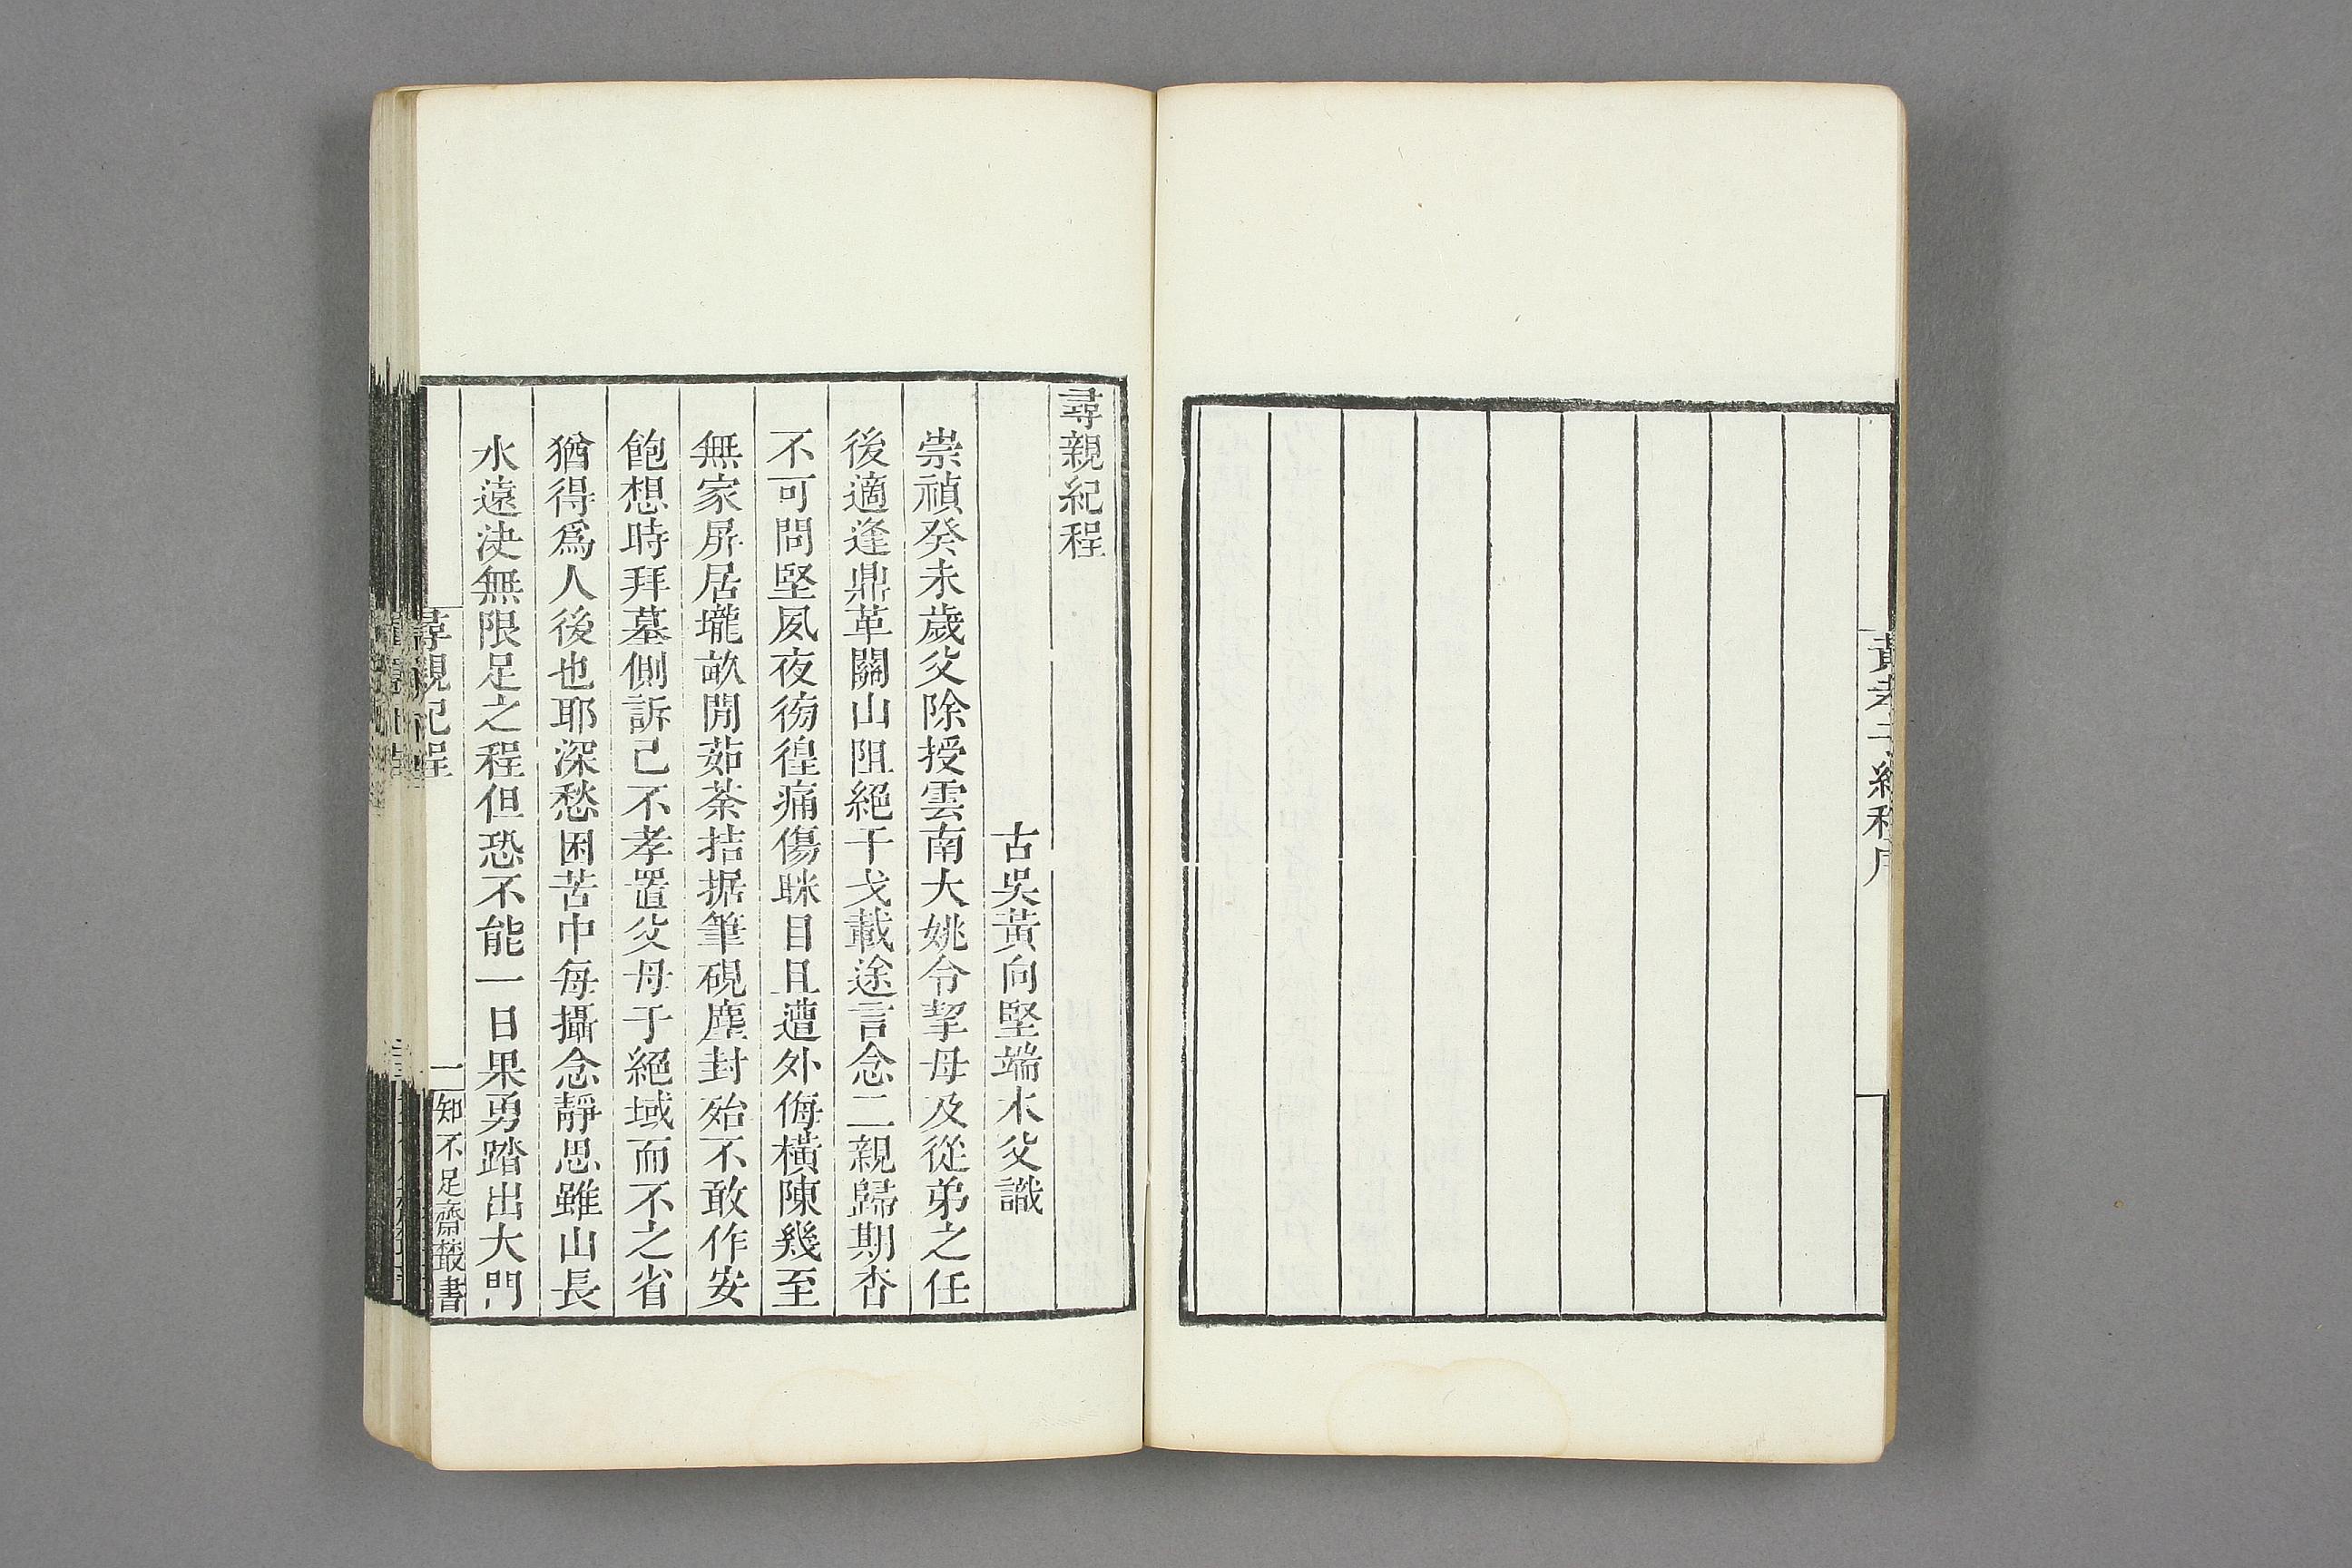 黃孝子紀程序
尋親紀程
古吳黃向堅端木父識
崇禎癸未歲父除授雲南大姚令挈母及從弟之任
後適逢鼎革關山阻絕干戈載途言念二親歸期杳
不可問堅夙夜徬徨痛傷眯目且遭外侮橫陳幾至
無家屏居壠畝閒茹荼拮据筆硯塵封殆不敢作安
飽想時拜墓側訴己不孝置父母于絕域而不之省
猶得爲人後也耶深愁困苦中每攝念靜思雖山長
水遠決無限足之程但恐不能一日果勇踏出大門
尋親紀程
一
知不足齋叢書